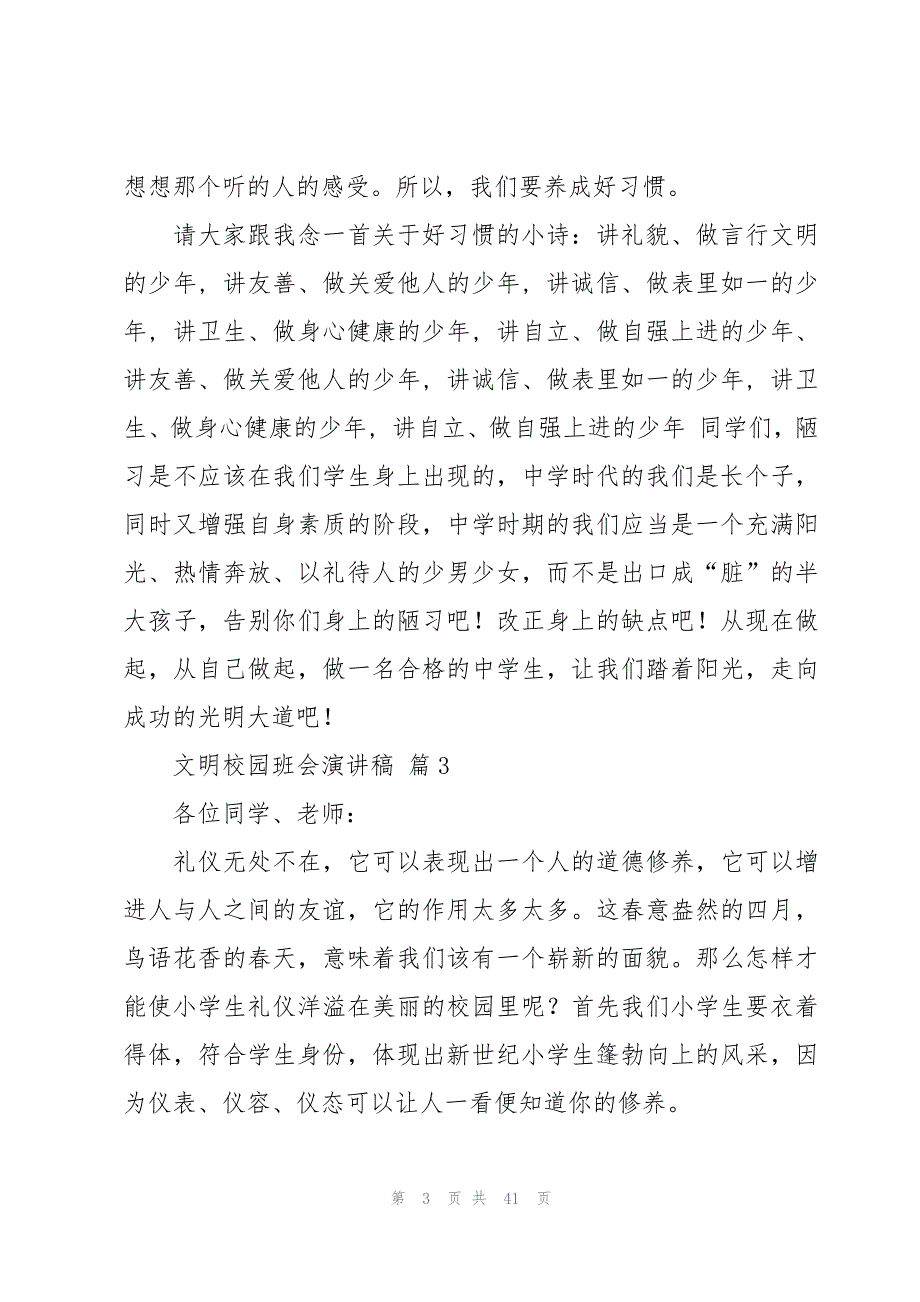 想想那个听的人的感受。所以，我们要养成好习惯。
请大家跟我念一首关于好习惯的小诗：讲礼貌、做言行文明
的少年，讲友善、做关爱他人的少年，讲诚信、做表里如一的少
年，讲卫生、做身心健康的少年，讲自立、做自强上进的少年、
讲友善、做关爱他人的少年，讲诚信、做表里如一的少年，讲卫
生、做身心健康的少年，讲自立、做自强上进的少年 同学们，陋
习是不应该在我们学生身上出现的，中学时代的我们是长个子，
同时又增强自身素质的阶段，中学时期的我们应当是一个充满阳
光、热情奔放、以礼待人的少男少女，而不是出口成“脏”的半
大孩子，告别你们身上的陋习吧！改正身上的缺点吧！从现在做
起，从自己做起，做一名合格的中学生，让我们踏着阳光，走向
成功的光明大道吧！
文明校园班会演讲稿 篇3
各位同学、老师：
礼仪无处不在，它可以表现出一个人的道德修养，它可以增
进人与人之间的友谊，它的作用太多太多。这春意盎然的四月，
鸟语花香的春天，意味着我们该有一个崭新的面貌。那么怎样才
能使小学生礼仪洋溢在美丽的校园里呢？首先我们小学生要衣着
得体，符合学生身份，体现出新世纪小学生篷勃向上的风采，因
为仪表、仪容、仪态可以让人一看便知道你的修养。
第 3 页 共 41 页